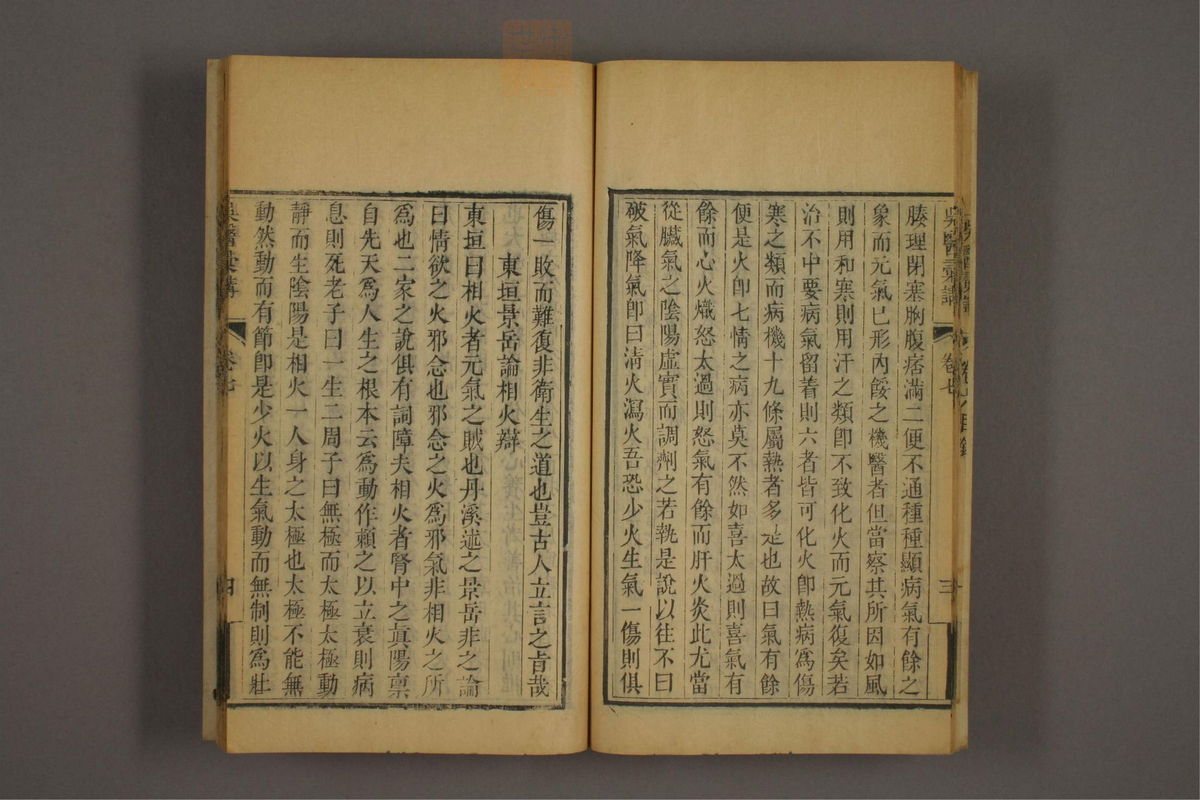 腠理閉塞胸腹痞滿二便不通種種顯病氣有餘之
象而元氣已形內餒之機醫者但當察其所因如風
則用和寒則用汗之類即不致化火而元氣復矣若
治不中要病氣留着則六者皆可化火即熱病爲傷
寒之類而病機十九條屬熱者多是也故曰氣有餘
便是火即七情之病亦莫不然如喜太過則喜氣有
餘而心火熾怒太過則怒氣有餘而肝火炎此尤當
從臟氣之陰陽虛實而調劑之若執是說以往不曰
破氣降氣卽曰清火瀉火吾恐少火生氣一傷則俱
傷一敗而難復非衛生之道也豈古人立言之旨哉
東垣景岳論相火辯
東垣曰相火者元氣之賊也丹溪述之景岳非之論
曰情欲之火邪念也邪念之火爲邪氣非相火之所
爲也二家之說俱有詞障夫相火者腎中之眞陽禀
自先天爲人生之根本云爲動作賴之以立衰則病
息則死老子曰一生二周子曰無極而太極太極動
靜而生陰陽是相火一人身之太極也太極不能無
動然動而有節卽是少火以生氣動而無制則爲壯
吳醫彙講 卷七